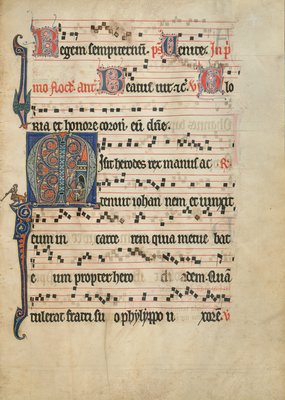 Regem sempiternum ps Venite. In pͥ
mo noct. ant. Beatus uir ⁊c. V Glo
ria et honore coron. eū. dn̄e.
Misit herodes rex manus ac R
tenuit iohan nem et uinxit
eum in carce rem quia metue bat
eum propter hero dem. Quā
tulerat fratri su o phylyppo u xorē. V